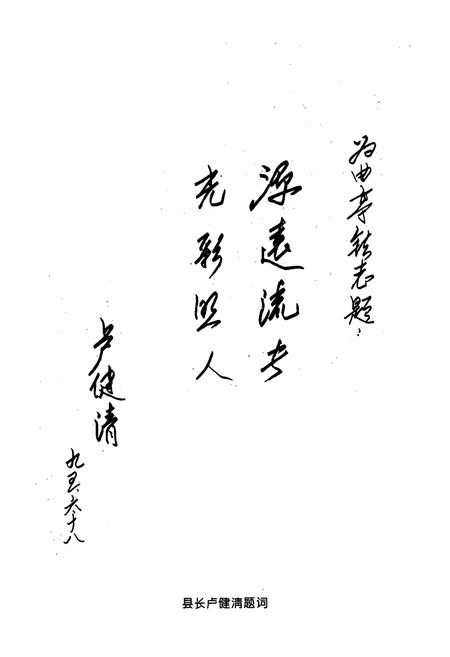 为曲亭镇志题:
源远流长
光彩照人
卢健清
九五.六.十八
县长卢健清题词